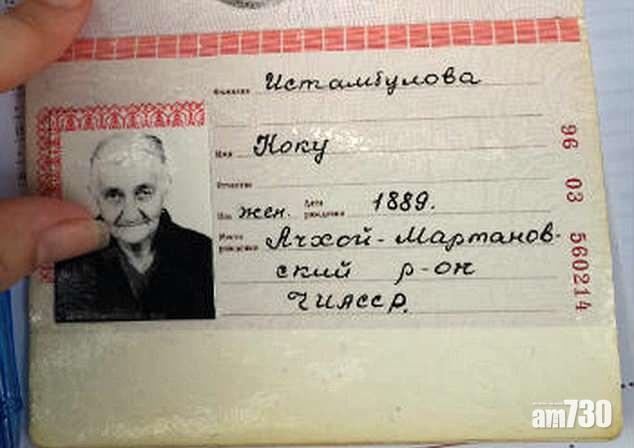 Фамилия Истамбулова
Имя Коку
Отчество
Пол жен. Дата рождения 1889.
Место рождения Ачхой-Мартанов-
ский р-он
ЧИАССР.
96 03 560214
am730